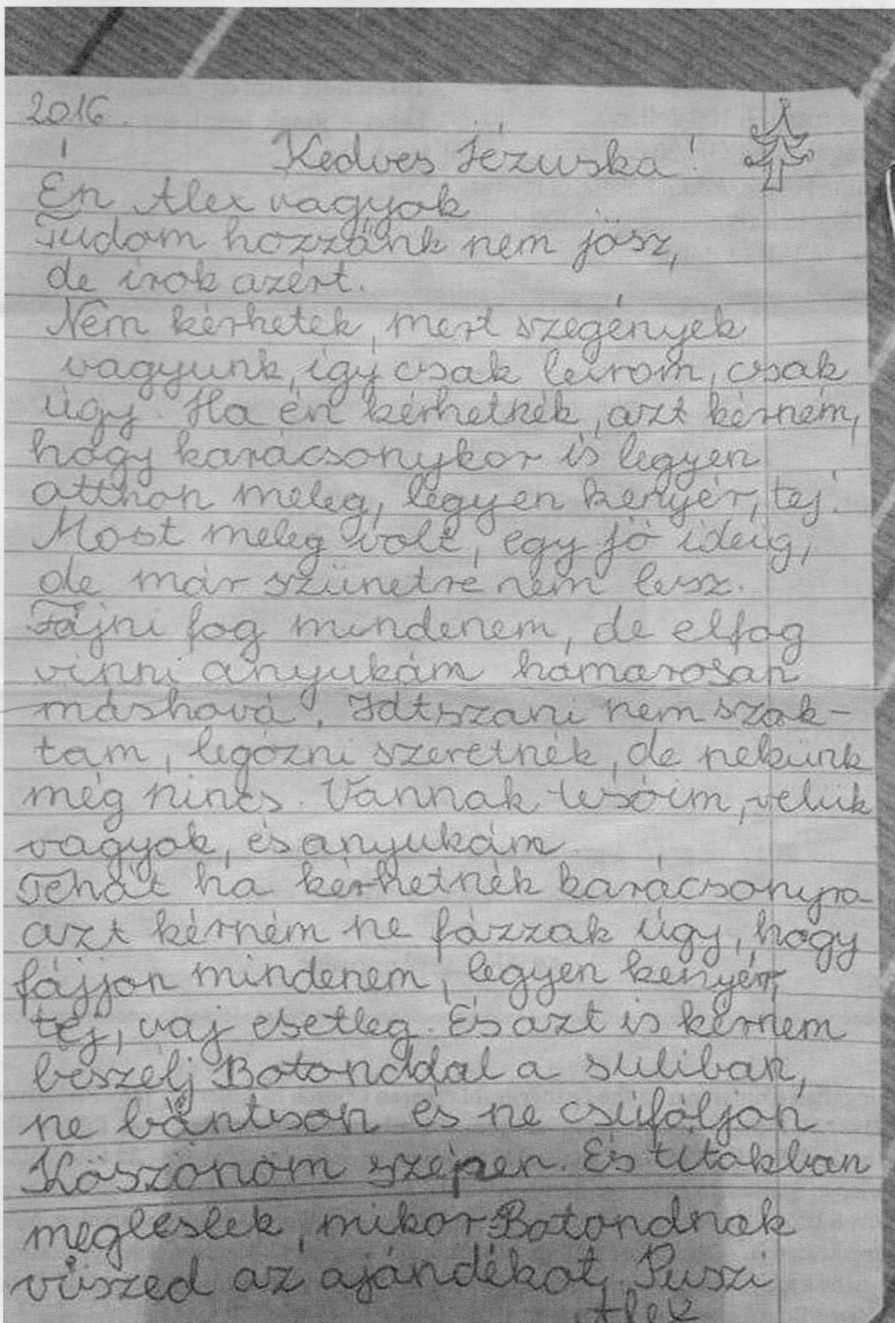 2016.
Kedves Jézuska!
Én Alex vagyok
Tudom hozzánk nem jösz,
de irok azért.
Nem kérhetek, mert szegények
vagyunk, így csak leirom, csak
úgy. Ha én kérhetnék, azt kérném,
hogy karácsonykor is legyen
otthon meleg, legyen kenyér, tej.
Most meleg volt, egy jó ideig,
de már szünetre nem lesz.
Fájni fog mindenem, de elfog
vinni anyukám hamarosan
máshová. Játszani nem szok-
tam, legózni szeretnék, de nekünk
még nincs. Vannak tesóim, velük
vagyok, és anyukám
Tehát ha kérhetnék karácsonyra
azt kérném ne fázzak úgy, hogy
fájjon mindenem, legyen kenyér,
tej, vaj esetleg. És azt is kérném
beszélj Botonddal a suliban,
ne bántson és ne csúfoljon
Köszönöm szépen. És titokban
megleslek, mikor Botondnak
viszed az ajándékot. Puszi
Alex